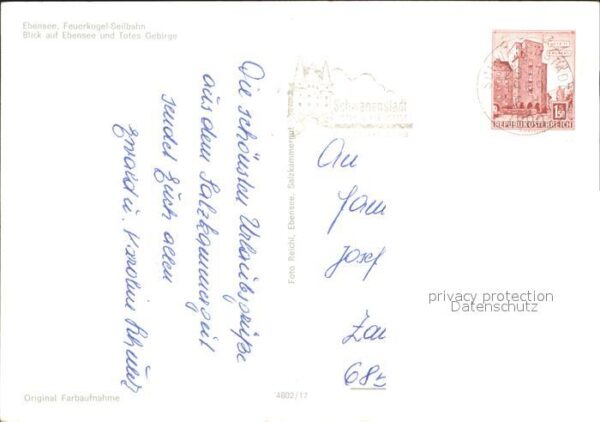 Ebensee, Feuerkogel-Seilbahn
Blick auf Ebensee und Totes Gebirge
Die schönsten Urlaubsgrüße
aus dem Salzkammergut
sendet Euch allen
Ewald u. Karoline
Foto Reichl, Ebensee, Salzkammergut
Schwanenstadt
1.50
REPUBLIK ÖSTERREICH
An
Fam
Josef
Zau
685
privacy protection
Datenschutz
Original Farbaufnahme
4802/17